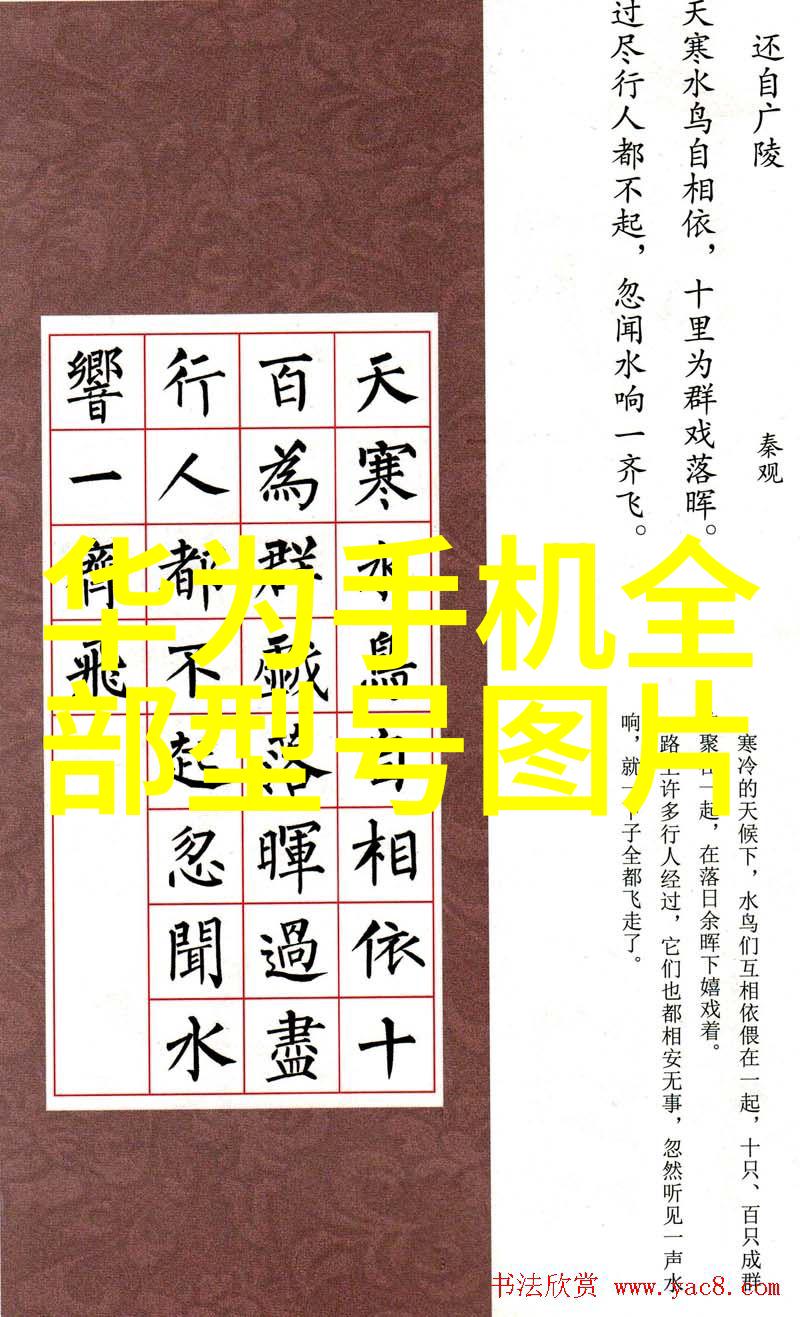 还自广陵
秦观
天寒水鸟自相依，十里为群戏落晖。
过尽行人都不起，忽闻水响一齐飞。
天寒水鳥自相依十
百為群戲落暉過盡
行人都不起忽聞水
響一齊飛
华为手机全
部型号图片
寒冷的天候下，水鸟们互相依偎在一起，十只、百只成群
聚在一起，在落日余晖下嬉戏着。
路上许多行人经过，它们也都相安无事，忽然听见一声水
响，就一下子全都飞走了。
书法欣赏 www.yac8.com